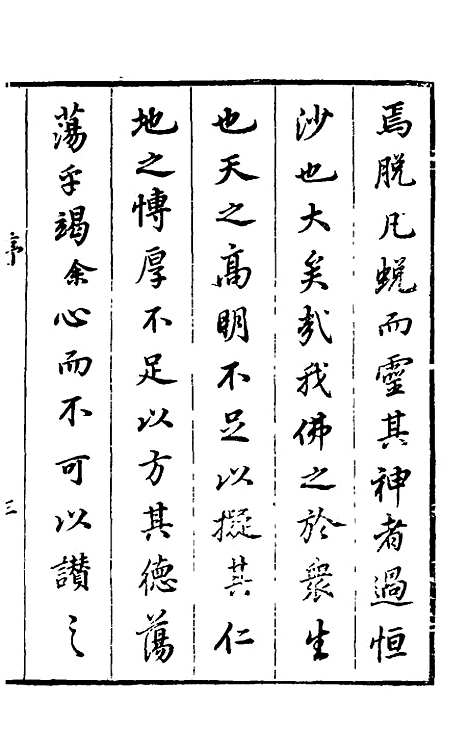 焉脫凡蛻而靈其神者過恒
沙也大矣哉我佛之於衆生
也天之高明不足以擬其仁
地之博厚不足以方其德蕩
蕩乎竭余心而不可以讃之
序
三